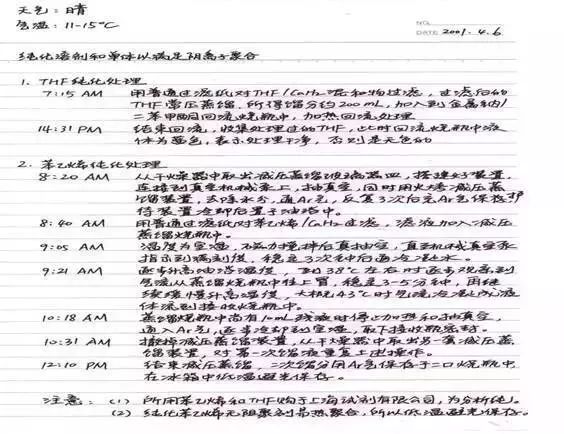 天气：晴
气温：11-15℃
NO.
DATE 2001.4.6
纯化溶剂和单体以满足阴离子聚合
1. THF纯化处理
7:15 AM 用普通过滤纸对THF/CaH₂混和物过滤，过滤后的
THF常压蒸馏，所得馏分约200mL，加入到金属钠/
二苯甲酮回流烧瓶中，加热回流处理
14:31 PM 结束回流，收集处理过的THF，此时回流烧瓶中液
体为蓝色，表示处理干净，否则是无色的
2. 苯乙烯纯化处理
8:20 AM 从干燥器中取出减压蒸馏玻璃器皿，搭建好装置，
连接到真空机械泵上，抽真空，同时用火烤减压蒸
馏装置，去除水分，通Ar气，反复3次后充Ar气保存
待装置冷却后置于油浴中。
8:40 AM 用普通过滤纸对苯乙烯/CaH₂过滤，滤液加入减压
蒸馏烧瓶中。
9:05 AM 温度为室温，不磁力搅拌后真抽空，真空机械真空表
指示到满刻度，稳定3次钟后通冷凝水。
9:21 AM 逐步升高油浴温度，到38℃左右时逐步观察到
气流从蒸馏烧瓶中往上冒，稳定3-5分钟，再继
续缓慢升高温度，大概43℃时气流冷凝成液
体流到接收烧瓶中。
10:18 AM 蒸馏烧瓶中尚有10mL残液时停止加热和抽真空，
通入Ar气，逐步冷却到室温，取下接收瓶密封。
10:31 AM 撤掉减压蒸馏装置，从干燥器中取出另一套减压蒸
馏装置，对第一次馏液重复上述操作。
12:10 PM 结束减压蒸馏，二次馏分用Ar气保存于二口烧瓶中
在冰箱中低温避光保存。
注意：(1) 所用苯乙烯和THF购于上海试剂有限公司，为分析纯。
(2) 纯化苯乙烯无阻聚剂易热聚合，所以低温避光保存。